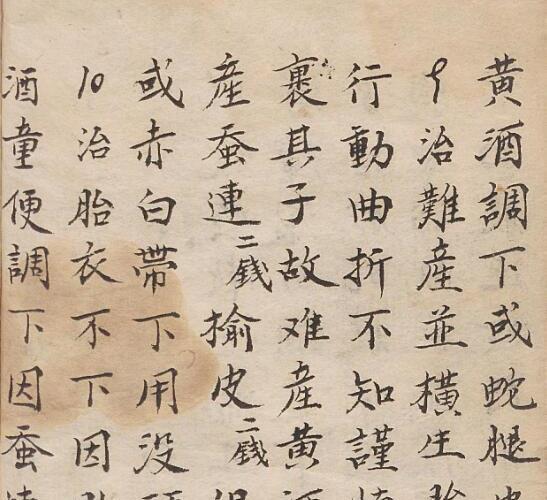 黄酒調下或蛇腿
9治難產並橫生
行動曲折不知謹
裏其子故难產黄
產蚕連二錢榆皮二錢
或赤白帶下用没
10治胎衣不下因
酒童便調下因蚕